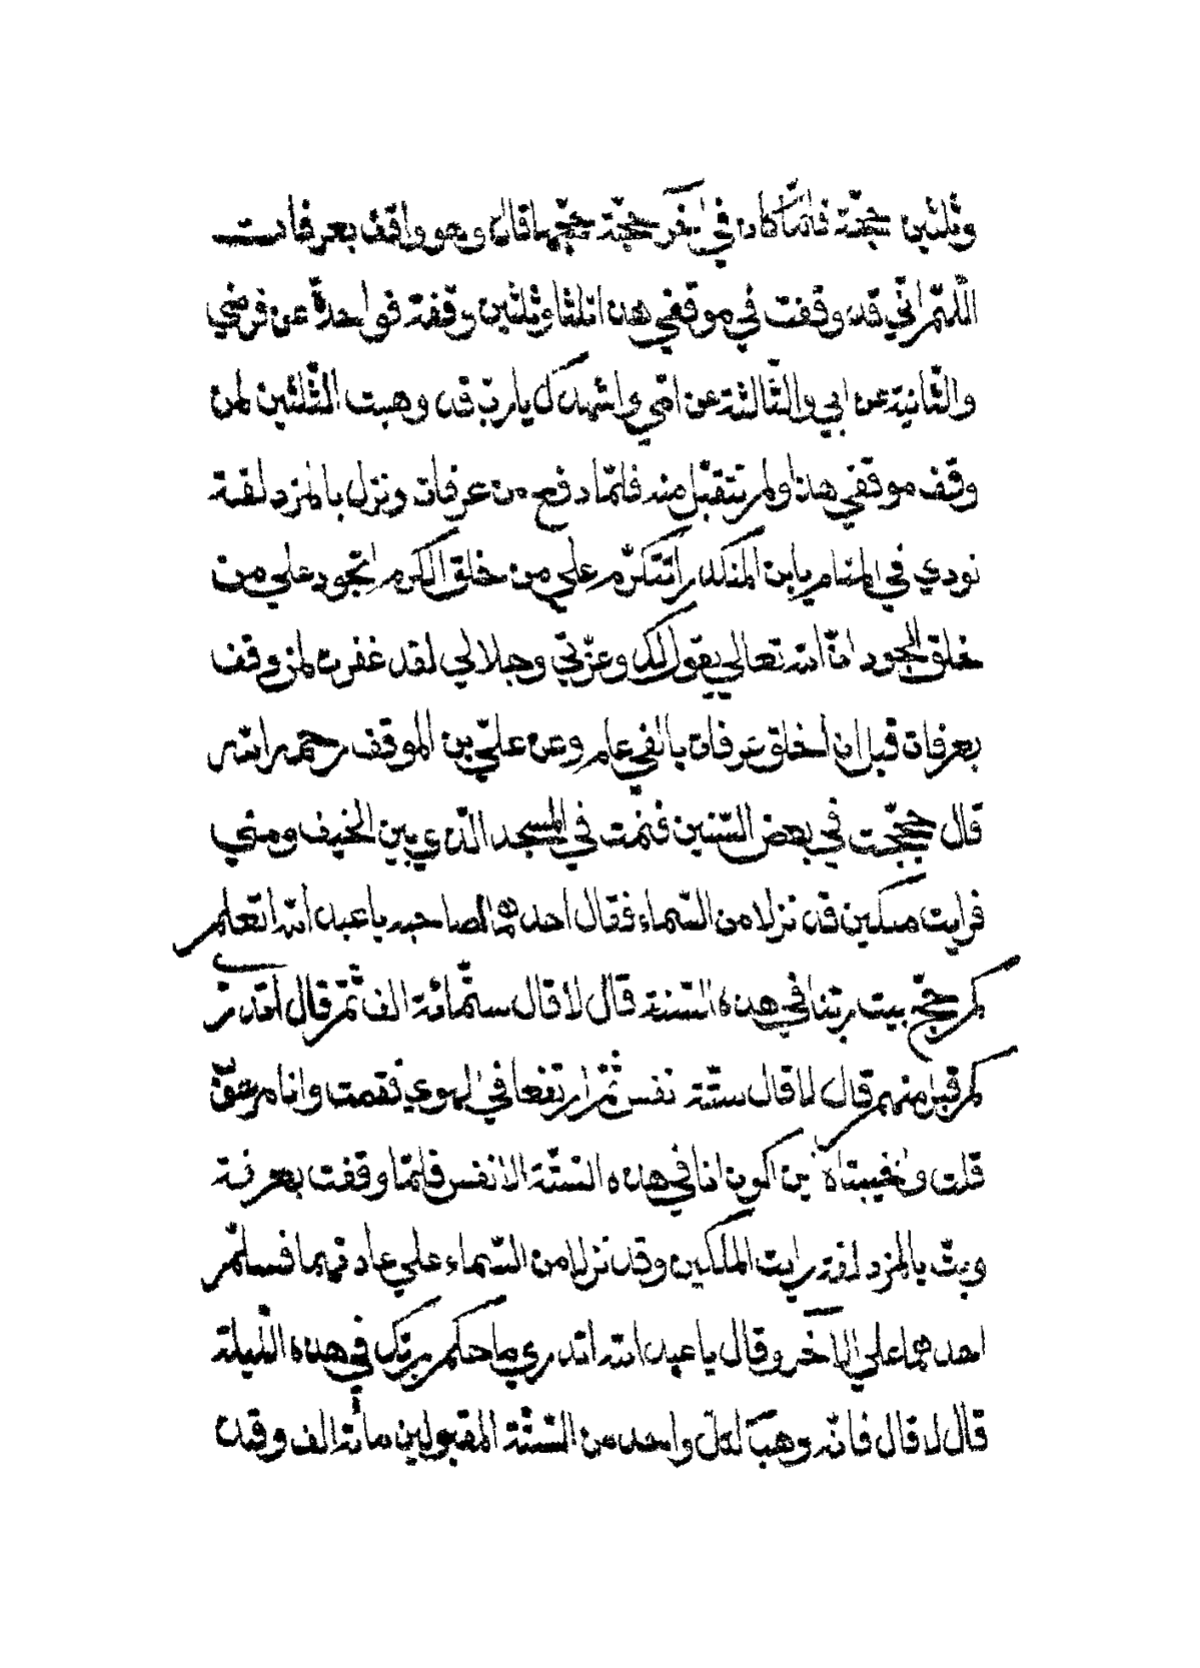 وثلثين حجّة فلمّا كان في اٰخر حجّة حجّها قال وهو واقف بعرفات
اللّهمّ انّي قد وقفت في موقفي هذا ثلثا وثلثين وقفة فواحدة عن فرضي
والثّانية عن ابي والثّالثة عن امّي واشهدك يا ربّ قد وهبت الثّلثين لمن
وقف موقفي هذا ولم تتقبّل منه فلمّا دفع من عرفات ونزل بالمزدلفة
نودي في المنام يا ابن المنكدر اتتكرّم علي من خلق الكرم اتجود علي من
خلق الجود انّ الله تعالي يقول لك وعزّتي وجلالي لقد غفرت لمن وقف
بعرفات قبل ان اخلق عرفات بالفي عام وعن عليّ بن الموقف رحمه الله
قال حججت في بعض السّنين فنمت في المسجد الّذي بين الخيف ومني
فرايت ملكين قد نزلا من السّماء فقال احدهما لصاحبه يا عبد الله اتعلم
كم حجّ بيت ربّنا في هذه السّنة قال لا قال ستّمائة الف ثمّ قال اتدري
كم قبل منهم قال لا قال ستّة نفس ثمّ ارتفعا في الهوي فقمت وانا مرعوق
قلت واخيبتاه اين اكون انا في هذه السّتّة الانفس فلمّا وقفت بعرفة
وبتّ بالمزدلفة رايت الملكين وقد نزلا من السّماء علي عادتهما فسلّم
احدهما علي الاٰخر وقال يا عبد الله اتدري ما حكم ربّك في هذه اللّيلة
قال لا قال فانّه وهب لكلّ واحد من السّتّة المقبولين مائة الف وقد